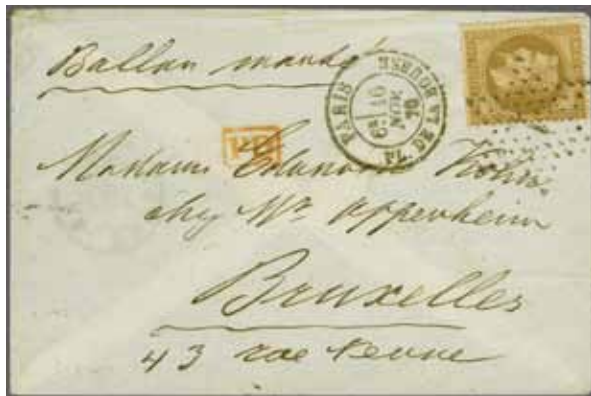 Ballon monté
PARIS
PL. DE LA BOURSE
6E 16
NOV
70
PD
Madame Edouard Kohn
chez Mr Oppenheim
Bruxelles
43 rue Neuve